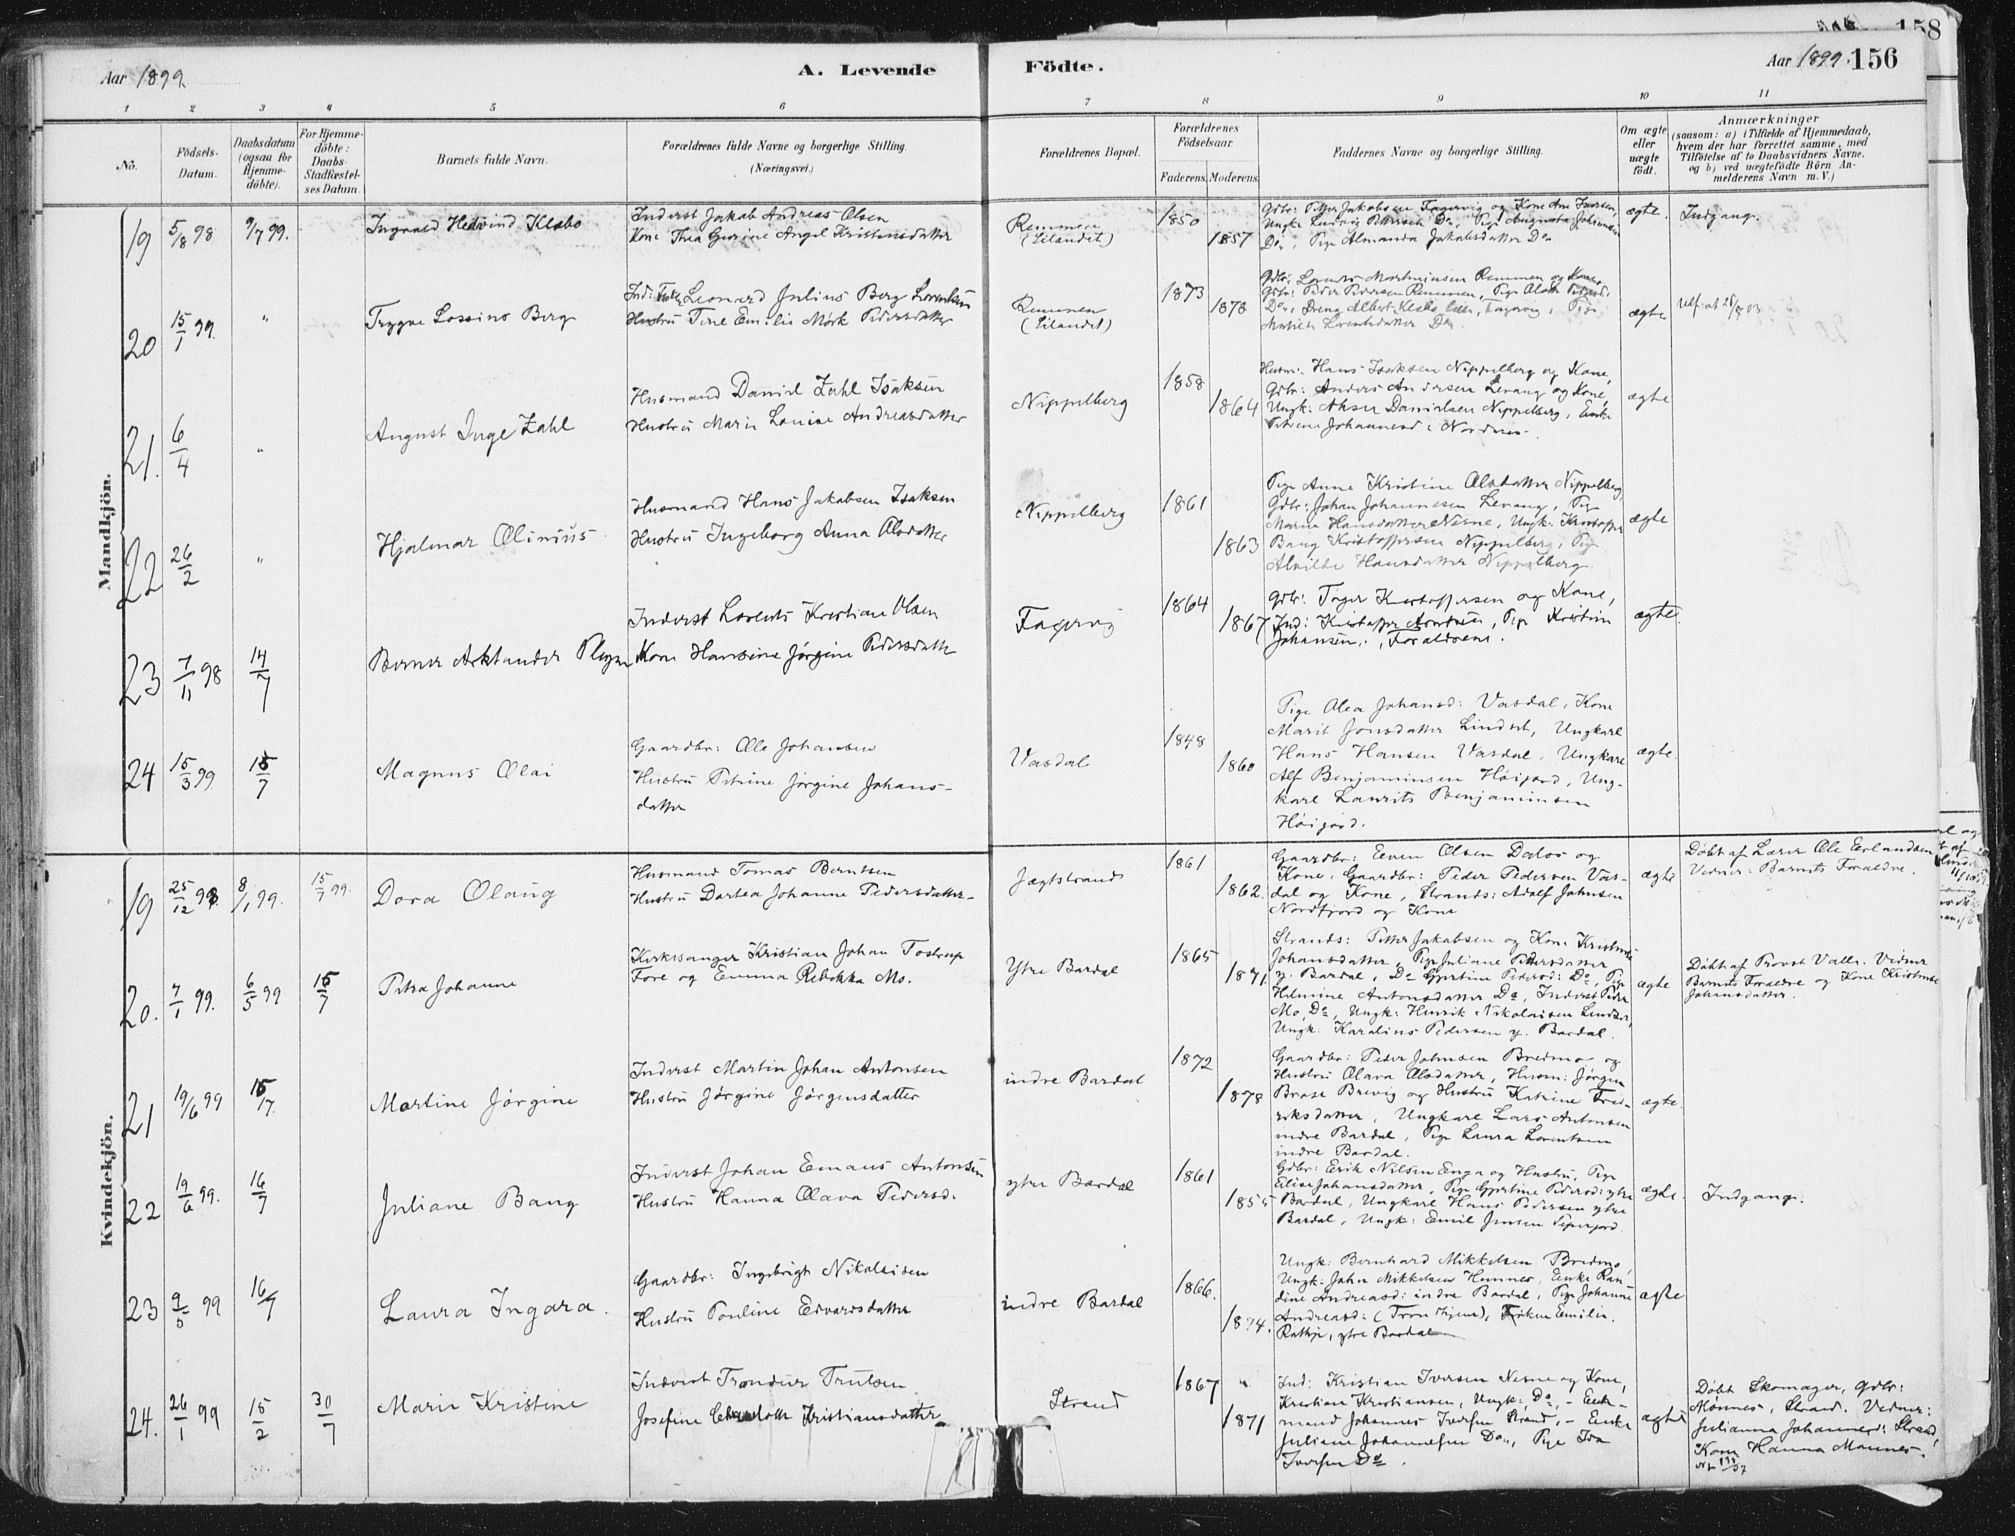 158
Aar 1899.
A. Levende
Födte.
Aar 1899. 156
1 2 3 4 5 6 7 8 9 10 11
No.
Födsels-Datum.
Daabsdatum (ogsaa for Hjemme-döbte).
For Hjemme-döbte: Daabs-Stadfæstel-ses Datum.
Barnets fulde Navn.
Forældrenes fulde Navne og borgerlige Stilling. (Næringsvei.)
Forældrenes Bopæl.
Forældrenes Födselsaar.
Faderens. Moderens.
Faddernes Navne og borgerlige Stilling.
Om ægte eller uægte födt.
Anmærkninger
(saasom: a) i Tilfælde af Hjemmedaab, hvem der har forrettet samme, med Tilföielse af to Daabsvidners Navne. og b) ved uægtefödte Börn An-melderens Navn m. V.)
Mandkjön.
19 5/8 98 9/7 99. Ingvald Hedvind Klæbo
Inderst Jakob Andreas Olsen
Kone Thea Gurine Angel Kristensdatter
Remmen
(Eilandet)
1850
1857
Gdbr: Petter Jakobsen Fagervig og Kone Ane Iversen,
Ungk: Ludvig Pettersen Do, Pige Augusta Johannesen
Do, Pige Almanda Jakobsdatter Do
ægte.
Indgang.
20 15/1 99. " Trygve Lossius Berg
Leonard Julius Berg Lorentsen
Hustru Tine Emilie Mörk Pedersdatter
Remmen
(Eilandet)
1873
1878
Gdbr: Lorents Martinusen Remmen og Kone,
Gdbr: Peder Pedersen Remmen, Pige
Do, Dreng Albert Klæbo Fagervig, Pige
Lorentsdatter Do.
ægte
21. 6/4 " August Inge Zahl
Husmand Daniel Zahl Isaksen
Hustru Marie Lovise Andreasdatter
Nippelberg
1858
1864
Husm: Hans Isaksen Nippelberg og Kone,
Gdbr: Anders Andersen Levang og Kone,
Ungk: Danielsen Nippelberg, Enke
Johannesd:
ægte
22 26/2 " Hjalmar Olinius
Husmand Hans Jakobsen Isaksen
Hustru Ingeborg Anna Olsdatter
Nippelberg
1861
1863
Pige Anne Kristine Olsdatter Nippelberg
Gdbr: Johan Johannesen Levang, Pige
Marie Hansdatter Nesne, Ungk: Kristoffer
Bang Kristoffersen Nippelberg, Pige
Alvilde Hansdatter Nippelberg.
ægte
23 7/11 98 14/7
Inderst Lorents Kristian Olsen
Kone Hansine Jörgine Pedersdatter
Fagervig
1864
1867
Gdbr: Kristoffersen og Kone,
Ind: Kristoffer Arntsen, Pige Kristine
Johansen, Forældrene.
ægte.
24 15/3 99. 15/7 Magnus Olai
Gaardbr: Ole Johansen
Hustru Petrine Jörgine Johans-
datter
Vasdal
1848
1860
Pige Olea Johansd: Vasdal, Kone
Marit Jonsdatter Lindset, Ungkarl
Hans Hansen Vasdal, Ungkarl
Alf Benjaminsen Höigard, Ung-
karl Laurits Benjaminsen
Höigard.
ægte
Kvindekjön.
19 25/12 98 8/1 99. 15/7 99. Dora Olaug
Husmand Tomas Berntsen
Hustru Dortea Johanne Pedersdatter
Jægtstrand
1861
1862.
Gaardbr: Even Olsen Dalos og
Kone, Gaardbr: Peder Pedersen Vas-
dal og Kone, Strands: Adolf Johnsen
Nordfjord og Kone
ægte
Döbt af Lærer Ole Erlandsen
Vidner: Barnets Forældre.
20. 7/1 99. 6/5 99 15/7 Petra Johanne
Kirkesanger Kristian Johan Tostrup
Fore og Emma Rebekka Mo.
Ytre Bardal
1865
1871.
Strands: Petter Jakobsen og Kone Kristense
Johansdatter, Pige Juliane Pedersdatter
y. Bardal, Do Gjertine Pedersd: Do, Pige
Helmine Antonsdatter Do, Inderst Peder
Mo, Do, Ungk: Henrik Nikolaisen Lindset,
Ungk: Karolius Pedersen y. Bardal.
ægte
Döbt af Provst Valle. Vidner
Barnets Forældre og Kone Kristense
Johansdatter.
21 19/6 99 15/7. Martine Jörgine
Inderst Martin Johan Antonsen
Hustru Jörgine Jörgensdatter
indre Bardal
1872
1878
Gaardbr: Peder Johnsen Bredmo og
Hustru Olava Olsdatter, Husm: Jörgen
Brase Brevig og Hustru Katrine Fred-
riksdatter, Ungkarl Lars Antonsen
indre Bardal, Pige Laura Lorentsen
indre Bardal.
ægte.
22 19/6 99. 16/7 Juliane Bang
Inderst Johan Emaus Antonsen
Hustru Hanna Olava Pedersd.
ytre Bardal
1861
1855
Gdbr: Erik Nilsen Enga og Hustru, Pige
Elise Johansdatter, Pige Gjertine Pedersd: ytre
Bardal, Ungkarl Hans Pedersen ytre
Bardal, Ungk: Emil Jensen
ægte.
Indgang.
23 9/5 99 16/7 Laura Ingara.
Gaardbr: Ingebrigt Nikolaisen
Hustru Pouline Edvardsdatter
indre Bardal
1866.
1874.
Ungk: Bernhard Mikkelsen Bredmo,
Ungk: John Mikkelsen Hemnes, Enke Ran-
dine Andreasd: indre Bardal, Pige Johanne
Andreasd: (Tron hjem), Fröken Emilie
Rathje, ytre Bardal
ægte
24. 26/1 99 15/2 30/7 Marie Kristine
Inderst Trondur Trulsen
Josefine Charlotte Kristiansdatter
Strand
1867
1871
Ind: Kristian Iversen Nesne og Kone,
Kristian Kristiansen, Ungk: Do, - Enke-
mand Johannes Iversen Strand, - Enke
Juliane Johannesen Do, Pige Ida
Iversen Do.
ægte
Döbt Skomager, Gdbr:
Monnes, Strand. Vidner:
Julianna Johannesd: Strand,
Kone Hanna Monnes.